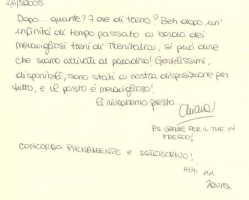 26/5/2005
Dopo... quante? 7 ore di treno? Beh dopo un'
infinità di tempo passato a bordo dei
meravigliosi treni di Trenitalia, si può dire
che siamo arrivati al paradiso! Gentilissimi,
disponibili, sono stati a nostra disposizione per
tutto, e il posto è meraviglioso!
Ci rivedremo presto
P.S. GRAZIE PER IL THE IN
FRESCO!
CONCORDO PIENAMENTE E SOTTOSCRIVO!
HIHI ^^